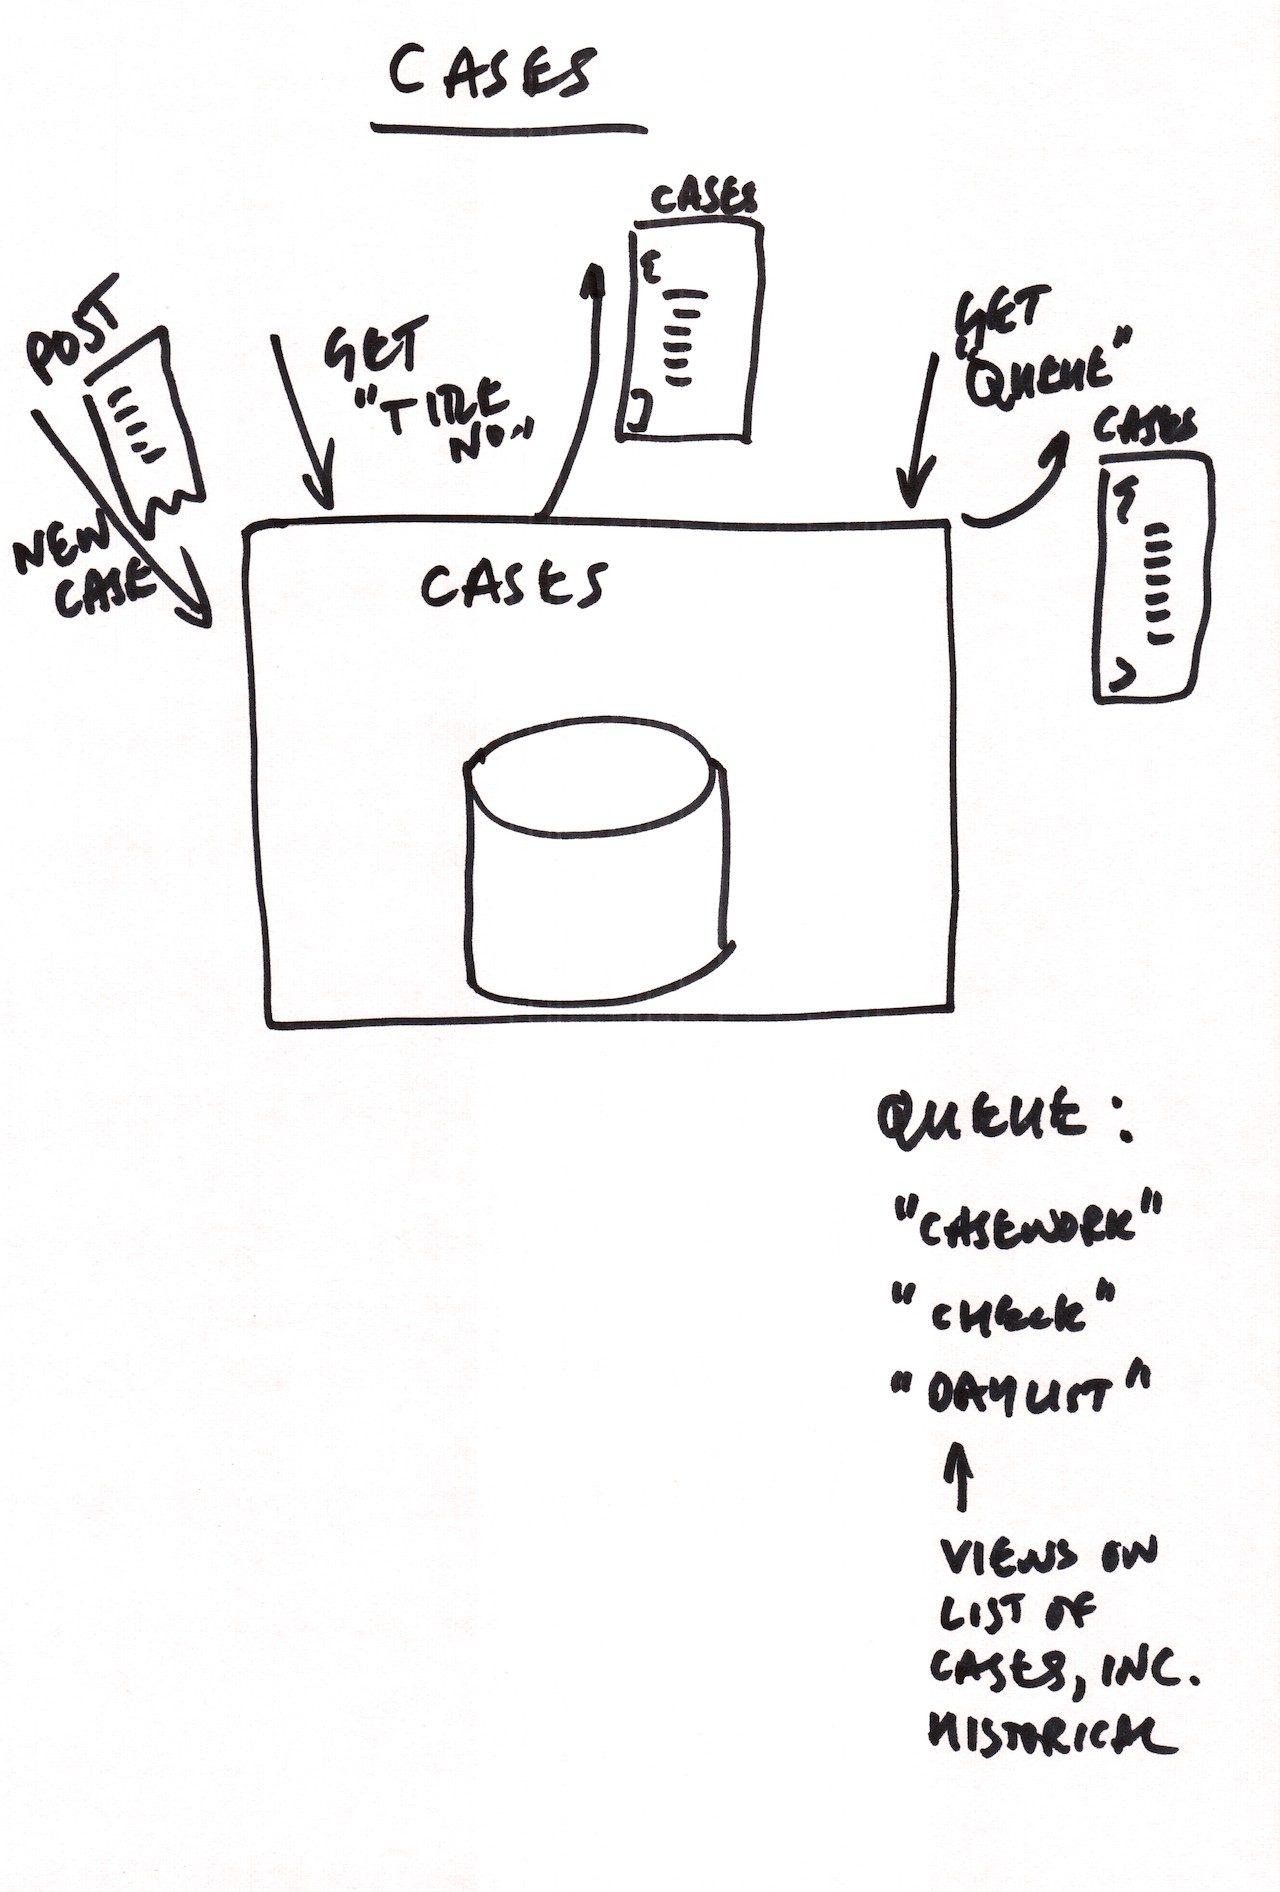 CASES
CASES
POST
NEW
CASE
GET
"TITLE
NO."
GET
"QUEUE"
CASES
CASES
QUEUE:
"CASEWORK"
"CHECK"
"DAYLIST"
VIEWS ON
LIST OF
CASES, INC.
HISTORICAL